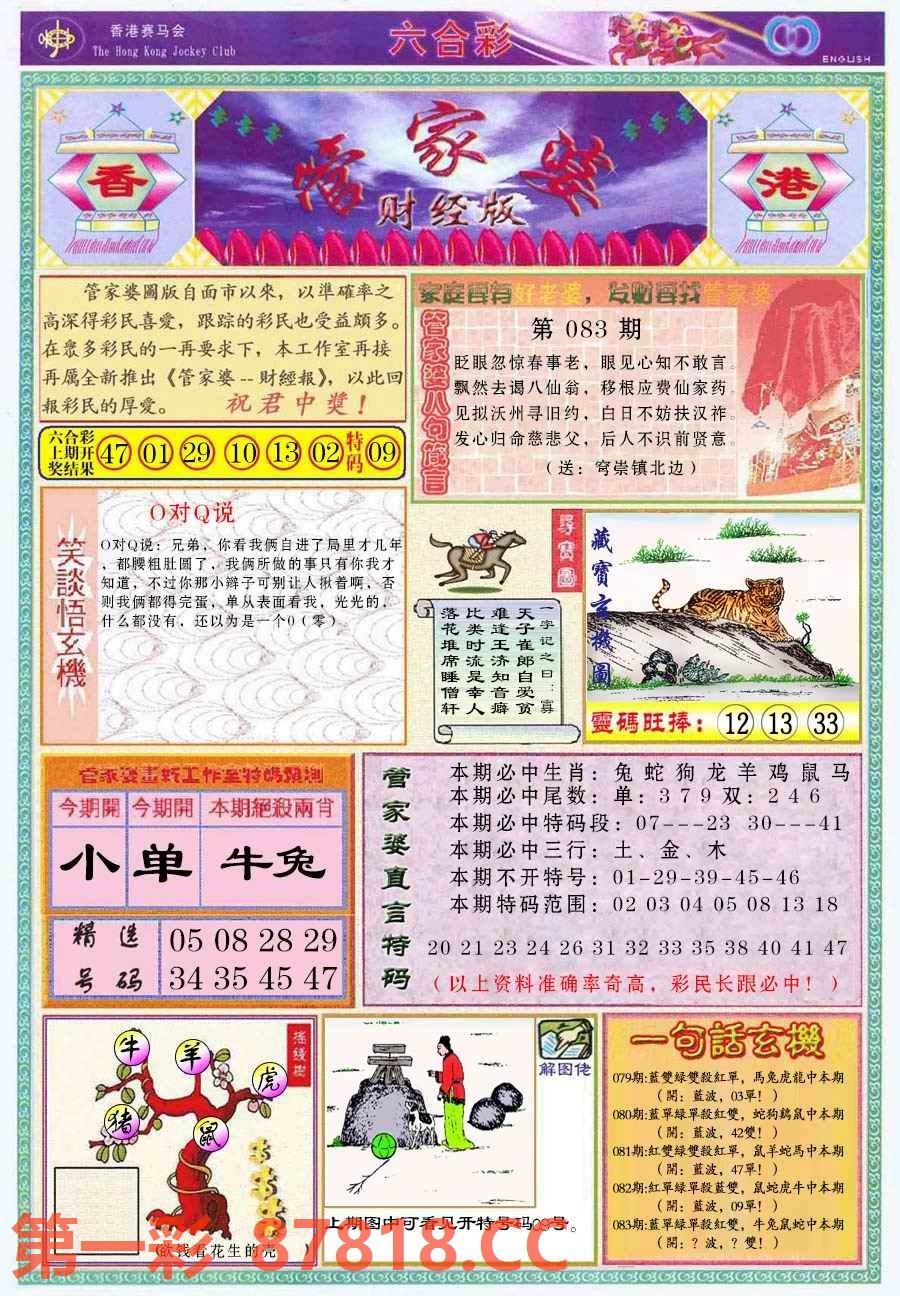 香港赛马会
The Hong Kong Jockey Club
六合彩
ENGLISH
香
管家婆
财经版
港
管家婆圖版自面市以來，以準確率之
高深得彩民喜愛，跟踪的彩民也受益頗多。
在衆多彩民的一再要求下，本工作室再接
再厲全新推出《管家婆--財經報》，以此回
報彩民的厚愛。 祝君中獎！
六合彩
上期开
奖结果
47 01 29 10 13 02 特码 09
家庭要有好老婆，发财要找管家婆
管家婆八句箴言
第 083 期
眨眼忽惊春事老，眼见心知不敢言。
飘然去谒八仙翁，移根应费仙家药。
见拟沃州寻旧约，白日不妨扶汉祚。
发心归命慈悲父，后人不识前贤意。
（送：穹崇镇北边）
笑談悟玄機
O对Q说
O对Q说：兄弟，你看我俩自进了局里才几年
，都腰粗肚圆了，我俩所做的事只有你我才
知道，不过你那小辫子可别让人揪着啊，否
则我俩都得完蛋，单从表面看我，光光的，
什么都没有，还以为是一个0（零）.
尋寶圖
一字记之曰：寡
天子崔郎自爱贫
难逢王济知音癖
比类时流是幸人
落花堆席睡僧轩
藏寶玄機圖
靈碼旺捧：12 13 33
今期開 今期開 本期絕殺兩肖
小 单 牛兔
精选号码
05 08 28 29
34 35 45 47
管家婆直言特码
本期必中生肖：兔 蛇 狗 龙 羊 鸡 鼠 马
本期必中尾数：单：3 7 9 双：2 4 6
本期必中特码段：07---23 30---41
本期必中三行：土、金、木
本期不开特号：01-29-39-45-46
本期特码范围：02 03 04 05 08 13 18
20 21 23 24 26 31 32 33 35 38 40 41 47
（以上资料准确率奇高，彩民长跟必中！）
摇錢樹
牛
羊
虎
猪
鼠
（欲钱看花生的壳 ）
解图佬
上期图中可看见开特号码09号。
一句話玄機
079期:藍雙绿雙殺紅單，馬兔虎龍中本期
（開：藍波，03單！）
080期:藍單綠單殺紅雙，蛇狗鷄鼠中本期
（開：藍波，42雙！）
081期:紅雙綠雙殺紅單，鼠羊蛇馬中本期
（開：藍波，47單！）
082期:紅單綠單殺藍雙，鼠蛇虎牛中本期
（開：藍波，09單！）
083期:藍單綠單殺紅雙，牛兔鼠蛇中本期
（開：？波，？雙！）
第一彩 87818.CC